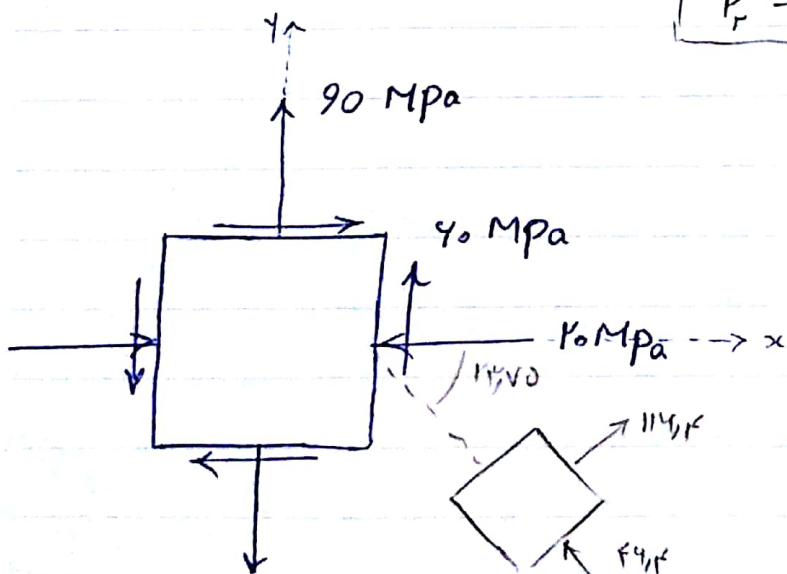 y
90 MPa
۶۰ MPa
۲۰ MPa
x
۲۳,۷۵
۱۱۶,۴
۴۶,۴